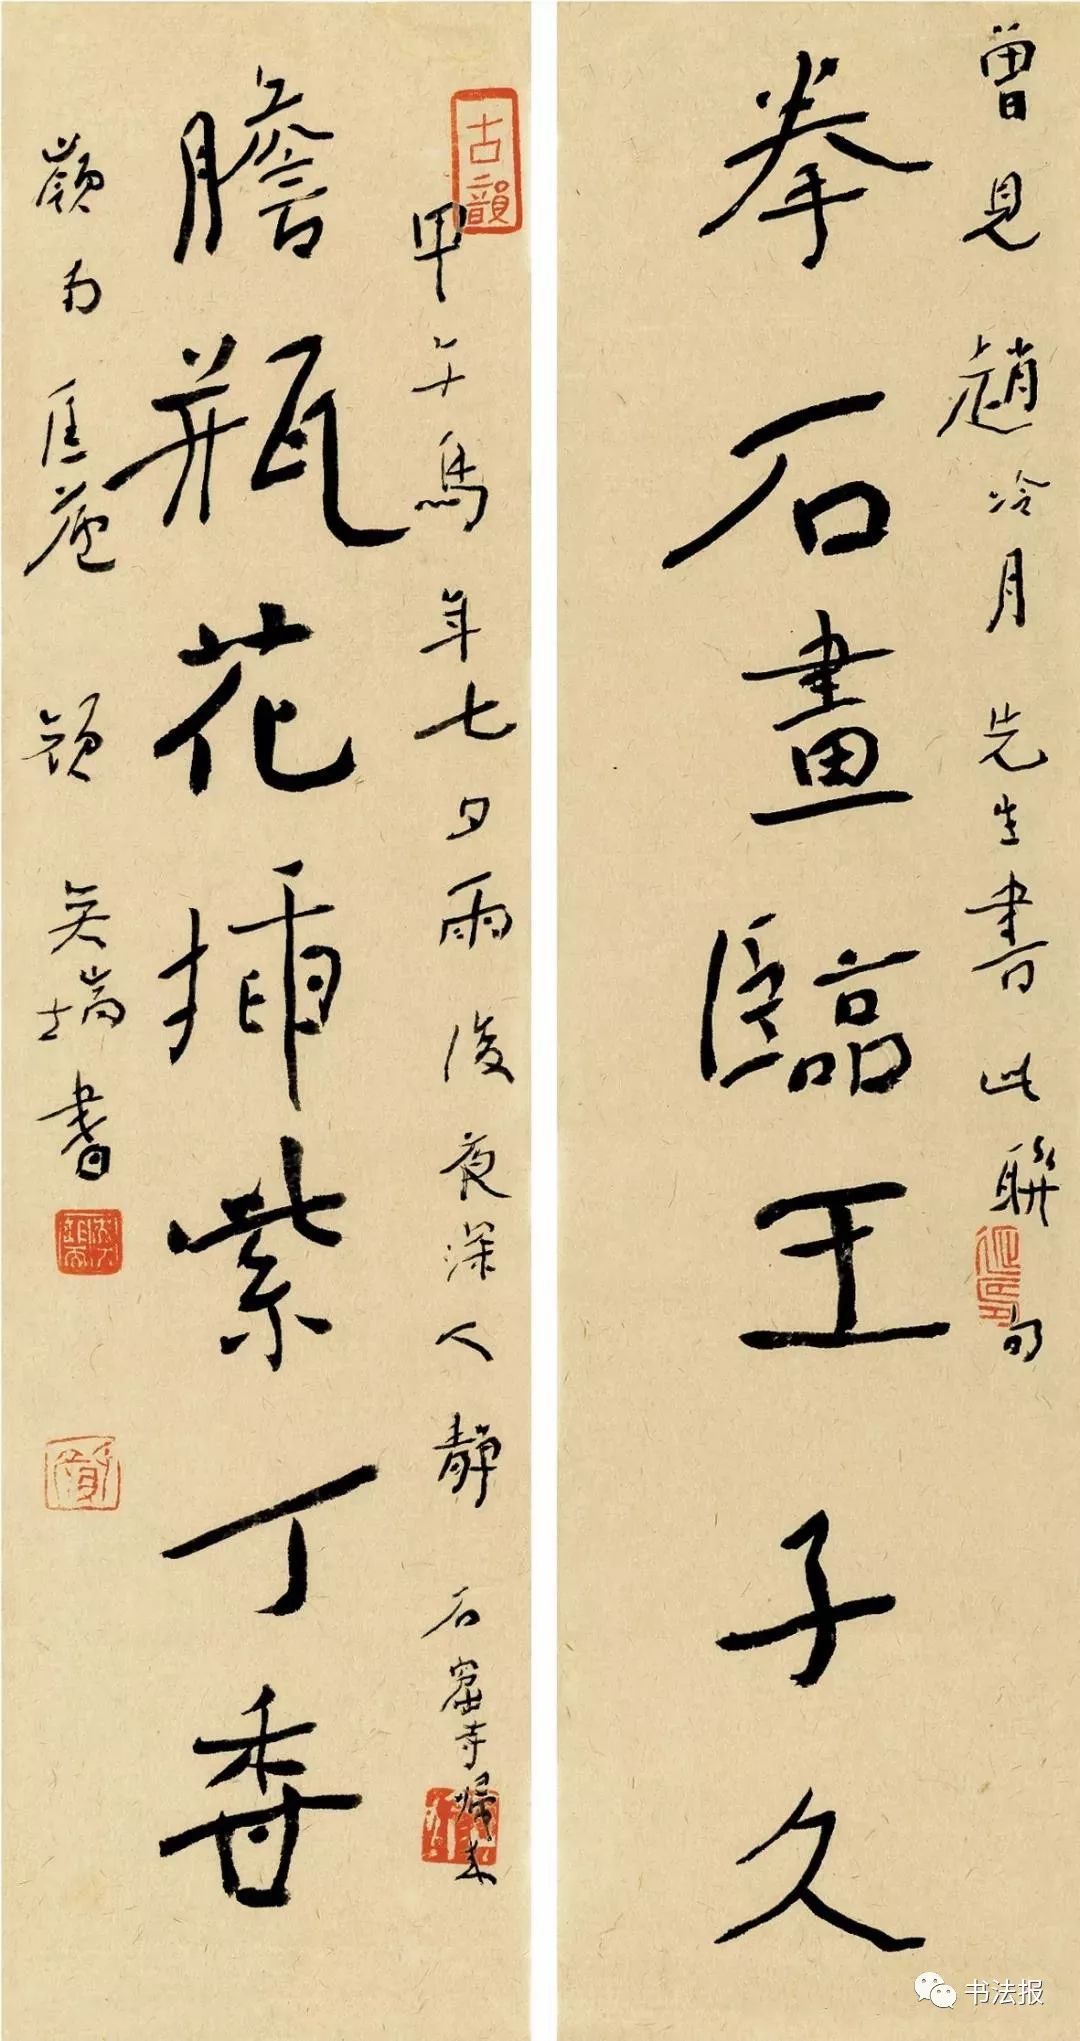 曾見趙冷月先生書此聯句
拳石畫臨王子久
古韻
甲午馬年七夕雨後夜深人靜石窟寺歸來
膽瓶花插紫丁香
嶺南
書
书法报